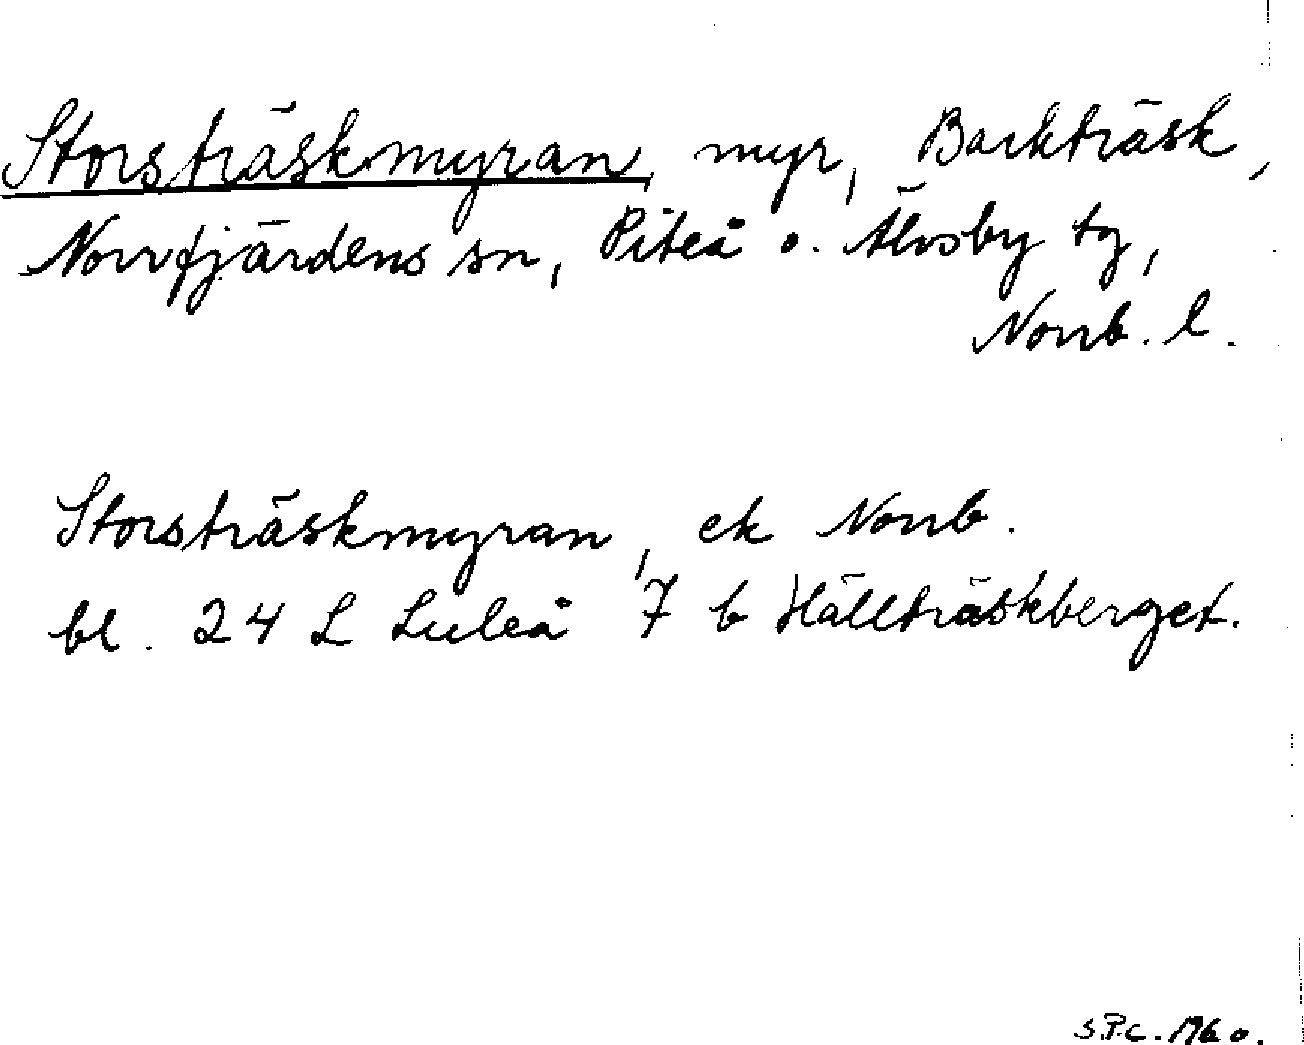 Storsträskmyran, myr, Barkträsk,
Norrfjärdens sn, Piteå o. Älvsby tg,
Norrb. l.
Storsträskmyran, ek Norrb.
bl. 24 L Luleå 7 b Hällträskberget.